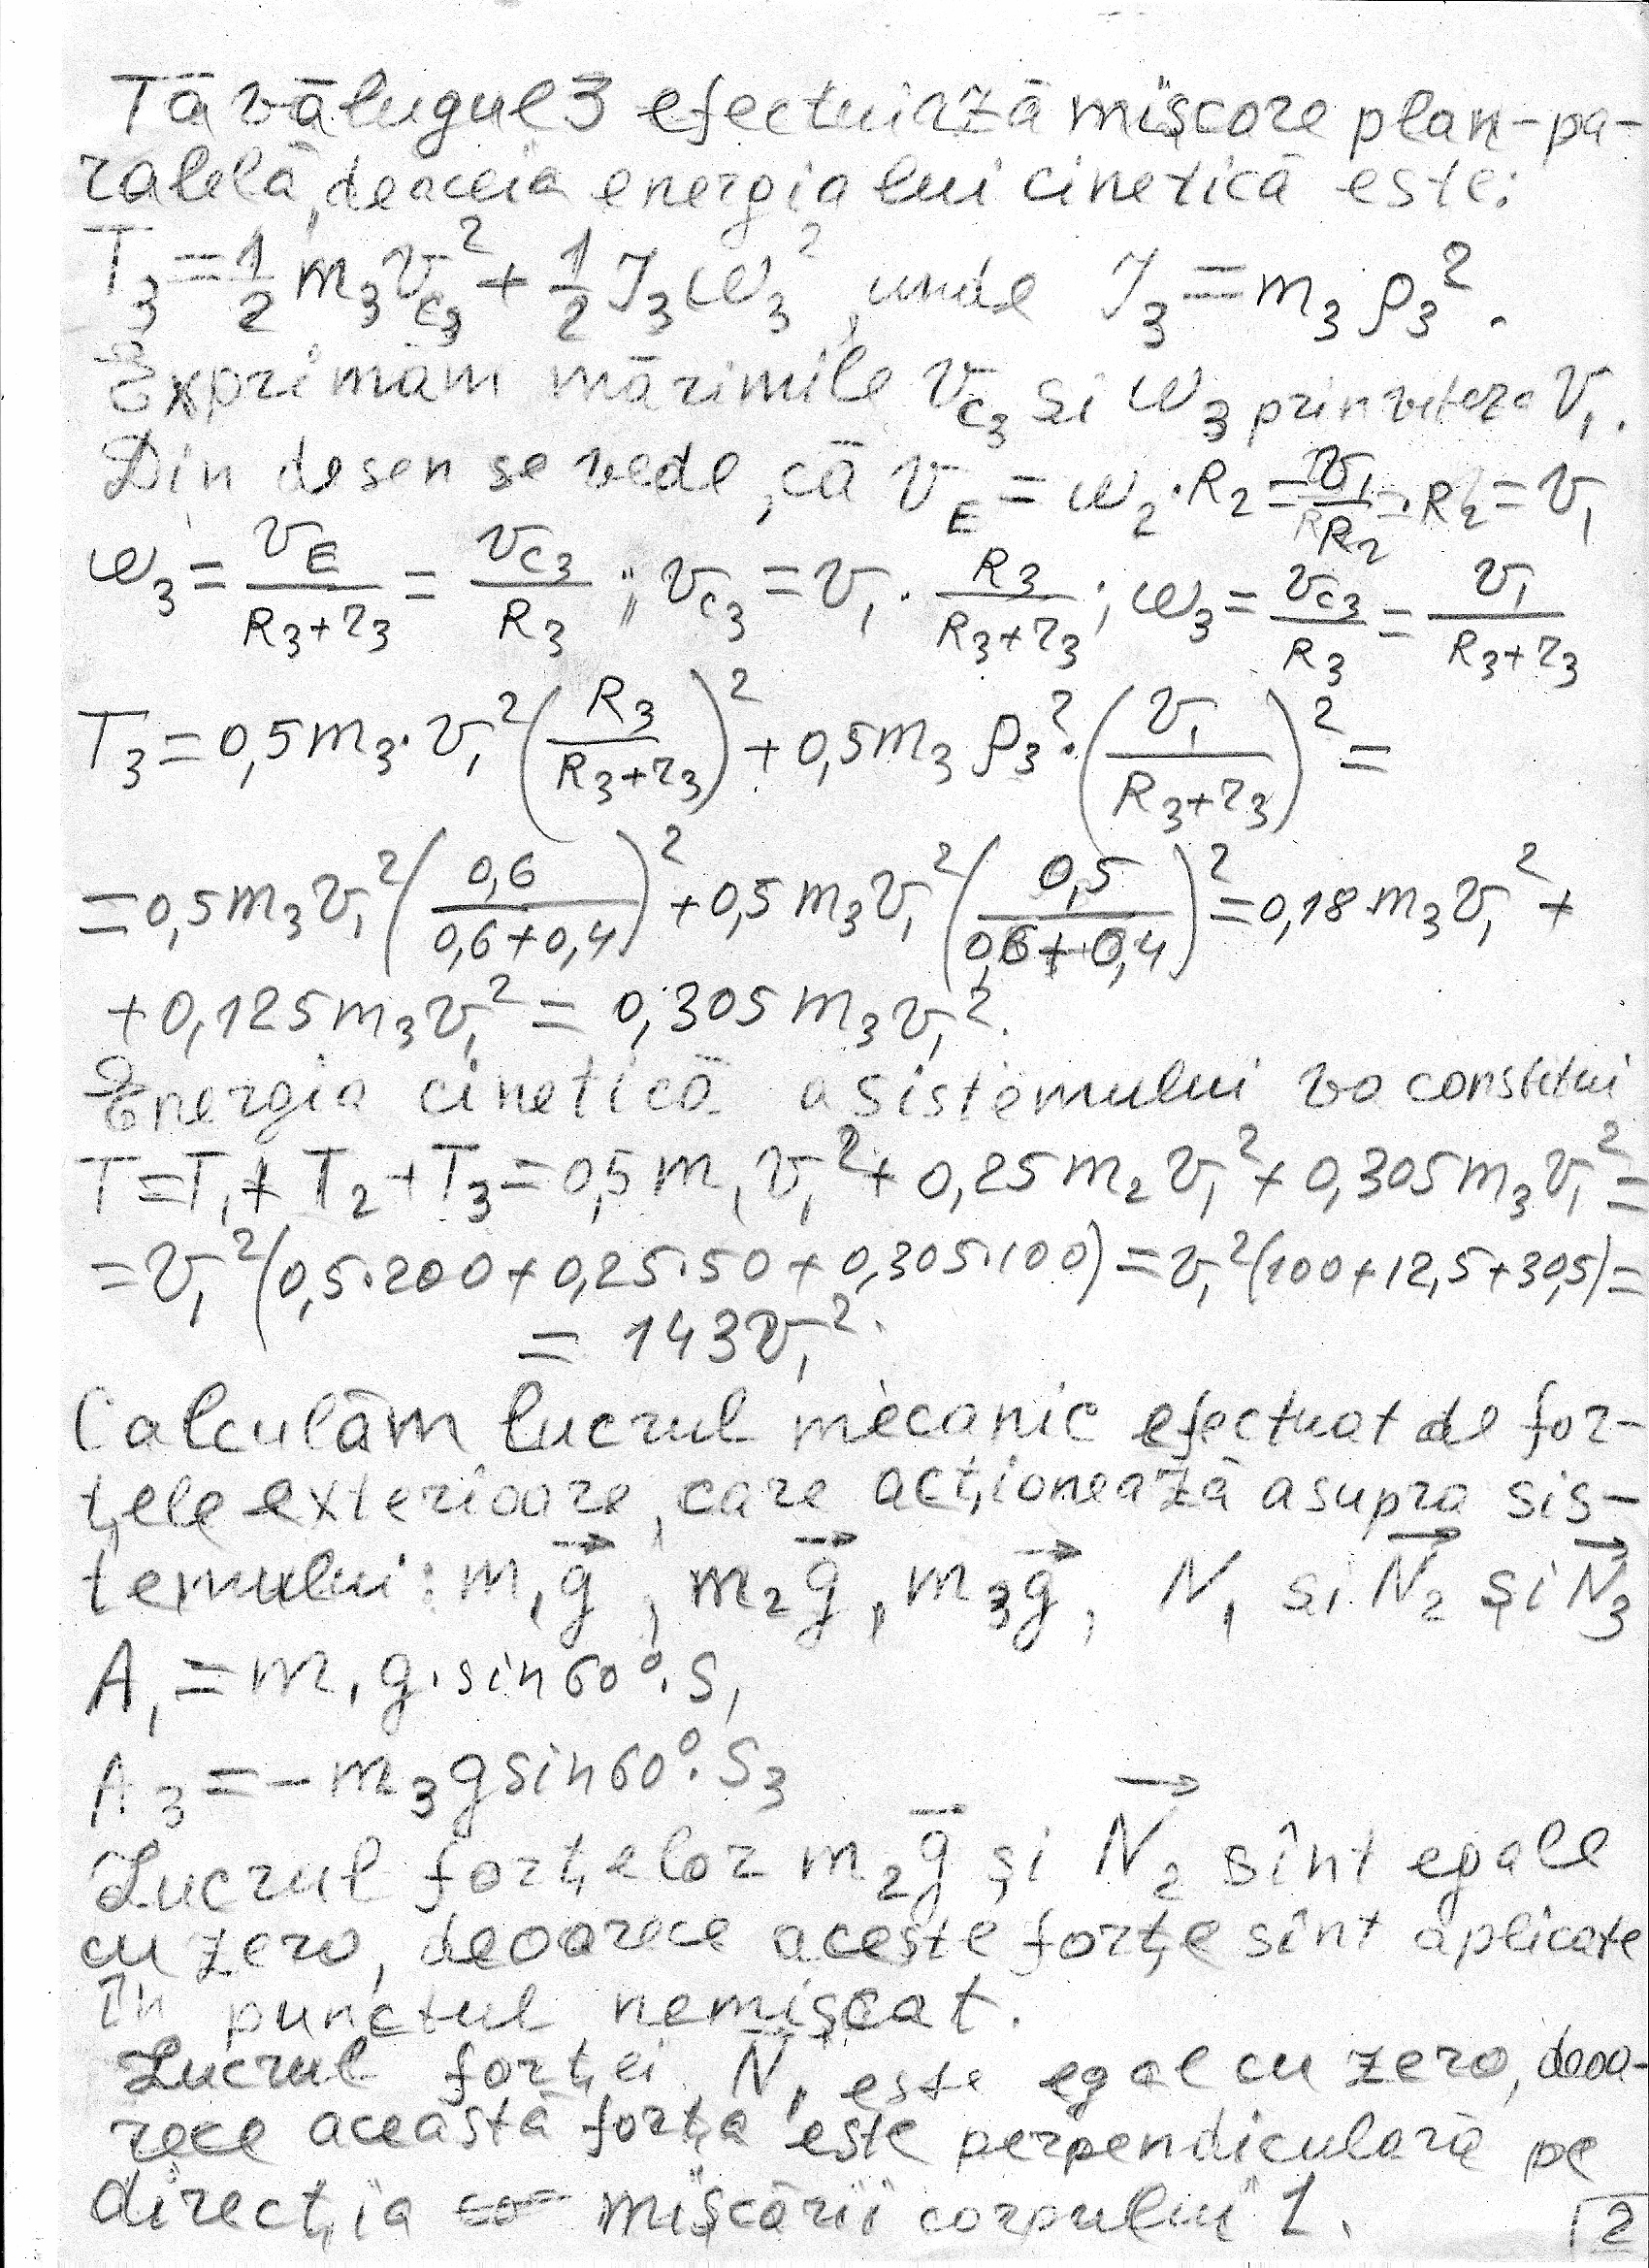 Tăvălugul 3 efectuiază mișcare plan-pa-
ralelă, deaceia energia lui cinetică este:
T₃ = 1/2 m₃ v_C₃² + 1/2 J₃ ω₃², unde J₃ = m₃ ρ₃².
Exprimăm mărimile v_C₃ si ω₃ prin viteza v₁.
Din desen se vede, că v_E = ω₂·R₂ = v₁/R₂ ·R₂ = v₁
ω₃ = v_E/(R₃+r₃) = v_C₃/R₃ ; v_C₃ = v₁ · R₃/(R₃+r₃) ; ω₃ = v_C₃/R₃ = v₁/(R₃+r₃)
T₃ = 0,5m₃·v₁² (R₃/(R₃+r₃))² + 0,5m₃ ρ₃² · (v₁/(R₃+r₃))² =
= 0,5m₃v₁² (0,6/(0,6+0,4))² + 0,5m₃v₁² (0,5/(0,6+0,4))² = 0,18 m₃v₁² +
+ 0,125m₃v₁² = 0,305m₃v₁².
Energia cinetică a sistemului va constitui
T = T₁ + T₂ + T₃ = 0,5m₁v₁² + 0,25m₂v₁² + 0,305m₃v₁² =
= v₁²(0,5·200 + 0,25·50 + 0,305·100) = v₁²(100+12,5+30,5) =
= 143v₁².
Calculăm lucrul mecanic efectuat de for-
țele exterioare, care acționează asupra sis-
temului: m₁g⃗, m₂g⃗, m₃g⃗, N₁ si N⃗₂ și N⃗₃
A₁ = m₁g·sin60°·S₁
A₃ = -m₃gsin60°·S₃
Lucrul forțelor m₂g⃗ și N⃗₂ sînt egale
cu zero, deoarece aceste forțe sînt aplicate
în punctul nemișcat.
Lucrul forței N⃗₁ este egal cu zero, deoa-
rece această forța este perpendiculară pe
direcția mișcării corpului 1.
2